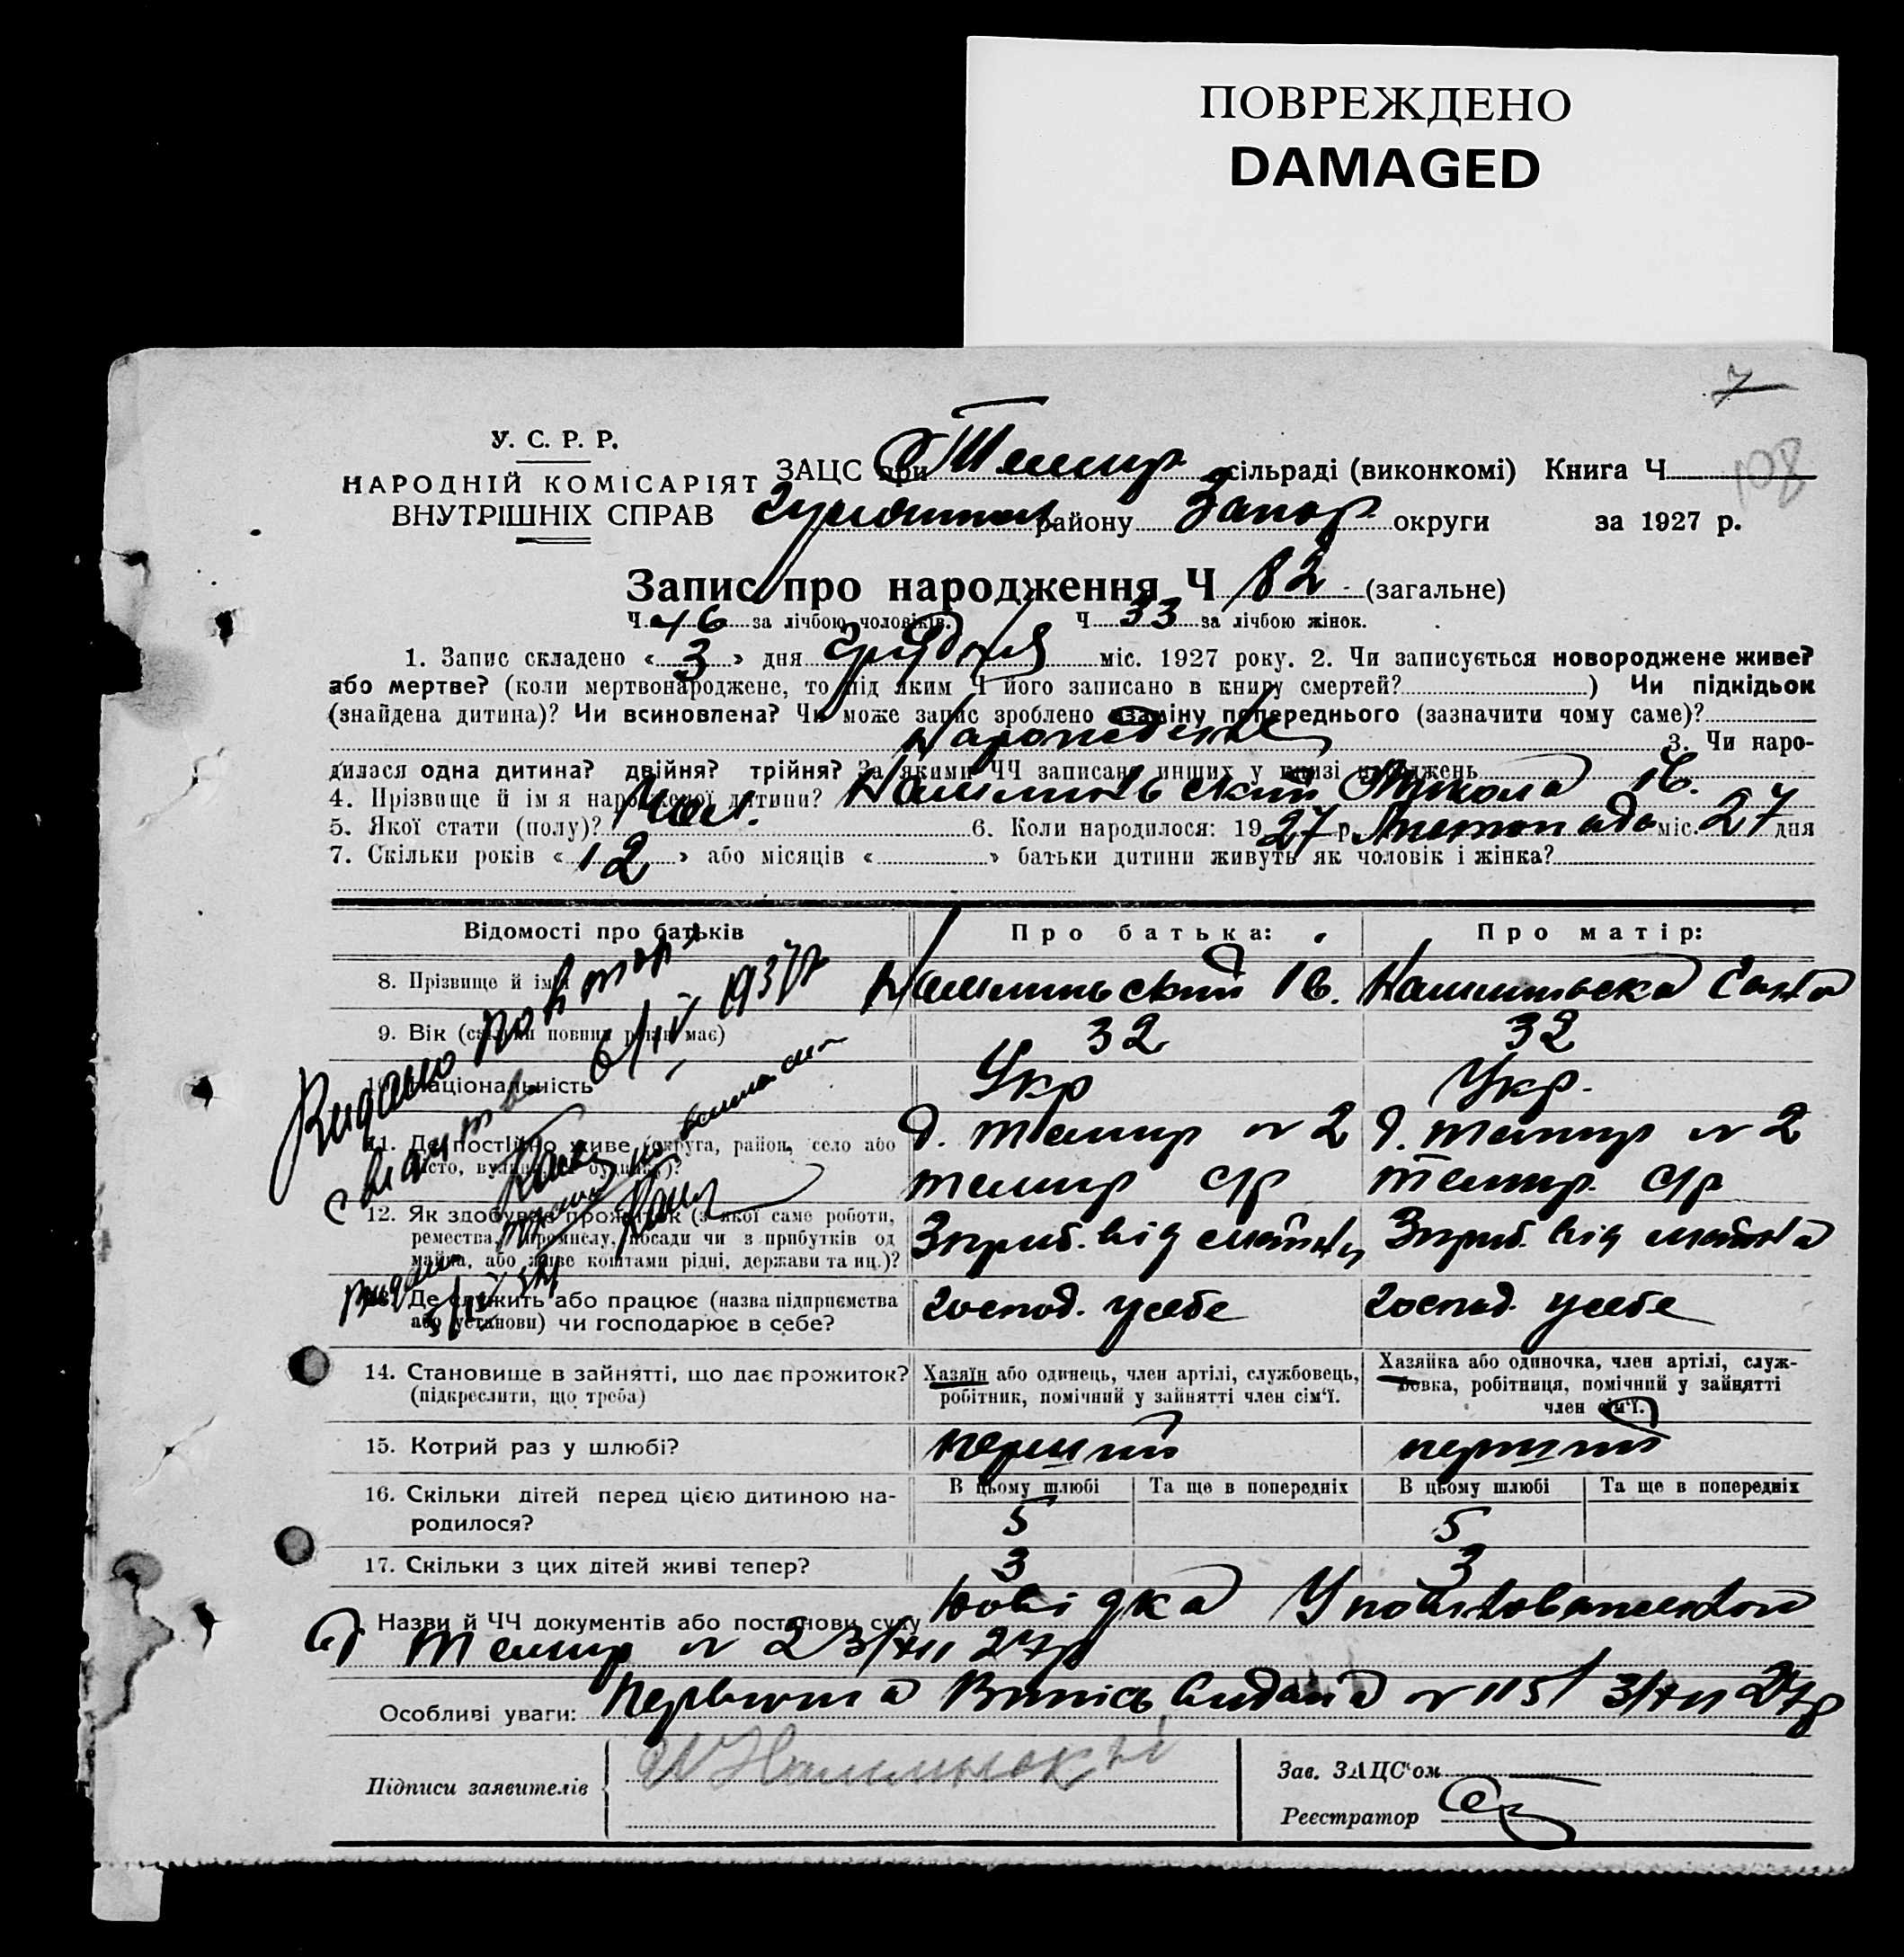 ПОВРЕЖДЕНО
DAMAGED
7
108
У. С. Р. Р.
НАРОДНІЙ КОМІСАРІЯТ
ВНУТРІШНІХ СПРАВ
ЗАЦС при Темир сільраді (виконкомі) Книга Ч
району Запор. округи за 1927 р.
Запис про народження Ч 82 (загальне)
Ч 46 за лічбою чоловіків. Ч 33 за лічбою жінок.
1. Запис складено « 3 » дня Грудня міс. 1927 року. 2. Чи записується новороджене живе?
або мертве? (коли мертвонароджене, то під яким Ч його записано в книгу смертей? ) Чи підкідьок
(знайдена дитина)? Чи всиновлена? Чи може запис зроблено взаміну попереднього (зазначити чому саме)?
3. Чи наро-
дилася одна дитина? двійня? трійня? За якими ЧЧ записано инших у книзі народжень
4. Прізвище й ім'я народженої дитини? Микола Ів.
5. Якої стати (полу)? Чол. 6. Коли народилося: 1927 р. Листопада міс. 27 дня
7. Скільки років « 12 » або місяців « » батьки дитини живуть як чоловік і жінка?
Відомості про батьків Про батька: Про матір:
8. Прізвище й ім'я Ів.
9. Вік (скільки повних років має) 32 32
10. Національність Укр Укр.
11. Де постійно живе (округа, район, село або місто, вулиця, ч. будинку)? д. Темир № 2 д. Темир № 2
Темир с/р Темир. с/р
12. Як здобуває прожиток (з якої саме роботи,
ремества, промислу, посади чи з прибутків од
майна, або живе коштами рідні, держави та ин.)? З приб. від майна З приб. від майна
13. Де служить або працює (назва підприємства
або установи) чи господарює в себе? господ. у себе господ. у себе
14. Становище в зайнятті, що дає прожиток?
(підкреслити, що треба)
Хазяїн або одинець, член артілі, службовець,
робітник, помічний у зайнятті член сім'ї.
Хазяйка або одиночка, член артілі, служ-
бовка, робітниця, помічний у зайнятті
член сім'ї.
15. Котрий раз у шлюбі? перший перший
В цьому шлюбі Та ще в попередніх В цьому шлюбі Та ще в попередніх
16. Скільки дітей перед цією дитиною на-
родилося? 5 5
17. Скільки з цих дітей живі тепер? 3 3
Видано повторн
6/IV 1937р
Назви й ЧЧ документів або постанови суду Довідка Уповноваженого
Темир № 2 3/XII 27р
Особливі уваги: Первична Випісь видана № 115 3/XII 27р
Підписи заявителів
Зав. ЗАЦС'ом
Реєстратор